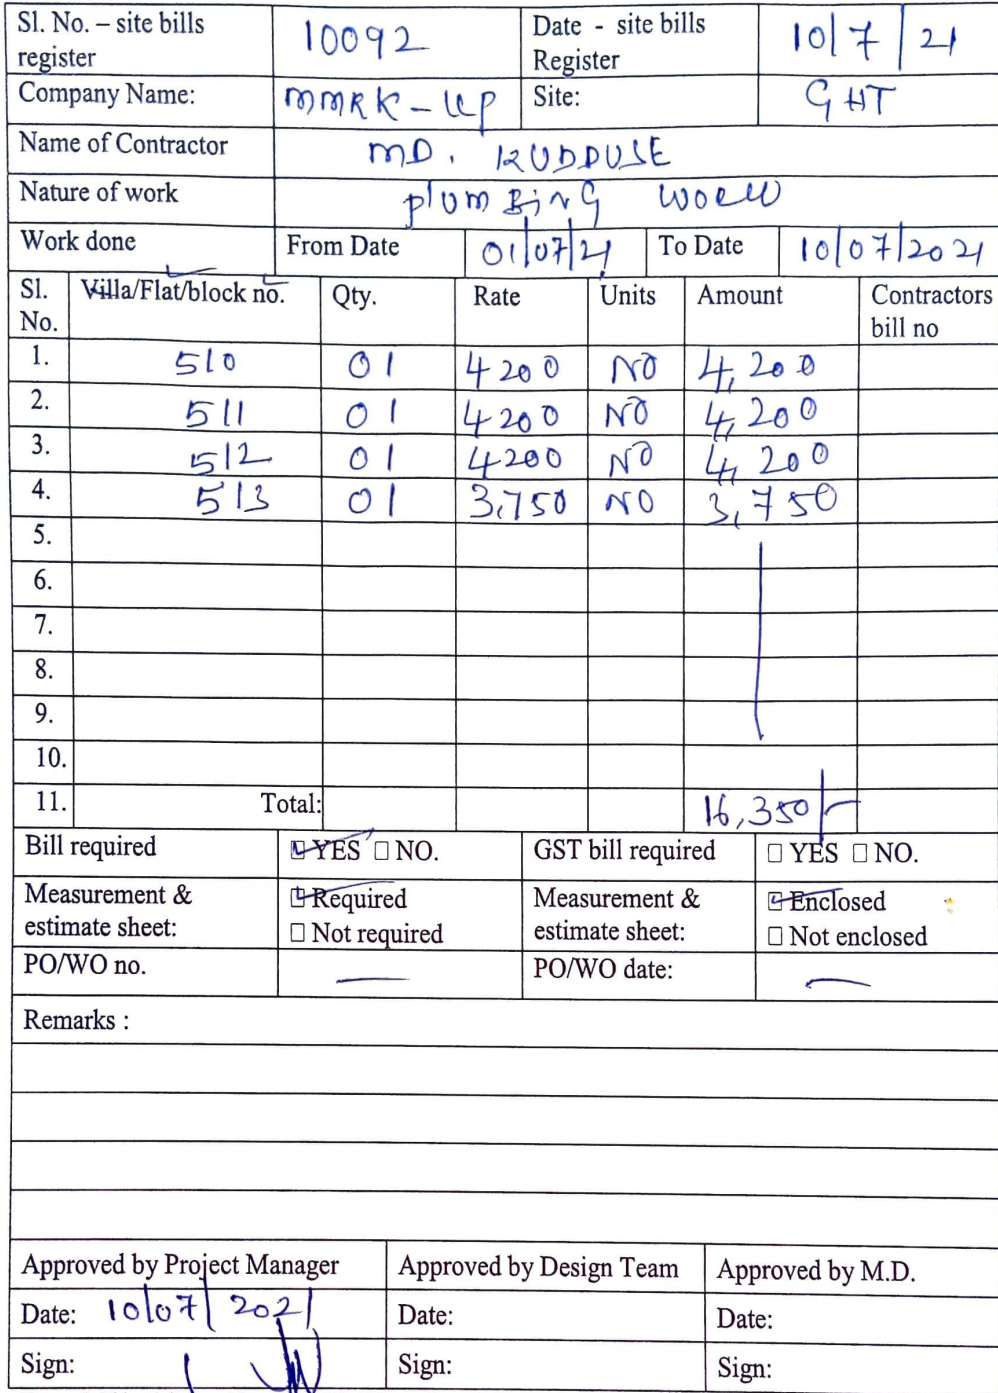 Sl. No. – site bills register 10092 Date - site bills Register 10/7/21
Company Name: MMRK-LLP Site: GHT
Name of Contractor MD. KUDDUSE
Nature of work plumBing work
Work done From Date 01/07/21 To Date 10/07/2021
Sl. No. Villa/Flat/block no. Qty. Rate Units Amount Contractors bill no
1. 510 01 4200 NO 4,200
2. 511 01 4200 NO 4,200
3. 512 01 4200 NO 4,200
4. 513 01 3,750 NO 3,750
5.
6.
7.
8.
9.
10.
11. Total: 16,350/-
Bill required ☑ YES ☐ NO. GST bill required ☐ YES ☐ NO.
Measurement & estimate sheet: ☑ Required ☐ Not required Measurement & estimate sheet: ☑ Enclosed ☐ Not enclosed
PO/WO no. — PO/WO date: —
Remarks :
Approved by Project Manager Approved by Design Team Approved by M.D.
Date: 10/07/2021 Date: Date:
Sign: Sign: Sign: